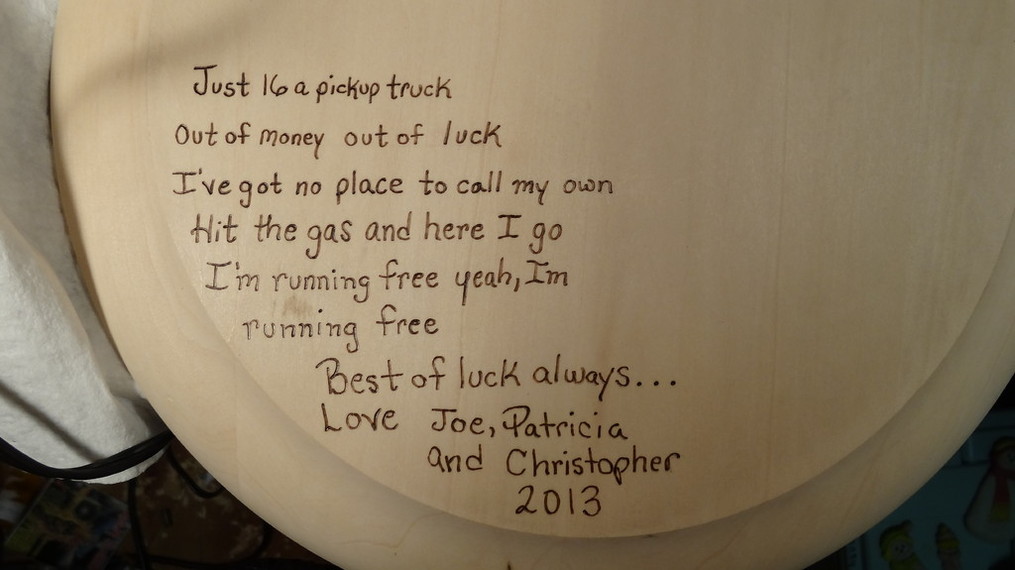 Just 16 a pickup truck
Out of money out of luck
I've got no place to call my own
Hit the gas and here I go
I'm running free yeah, Im
running free
Best of luck always...
Love Joe, Patricia
and Christopher
2013